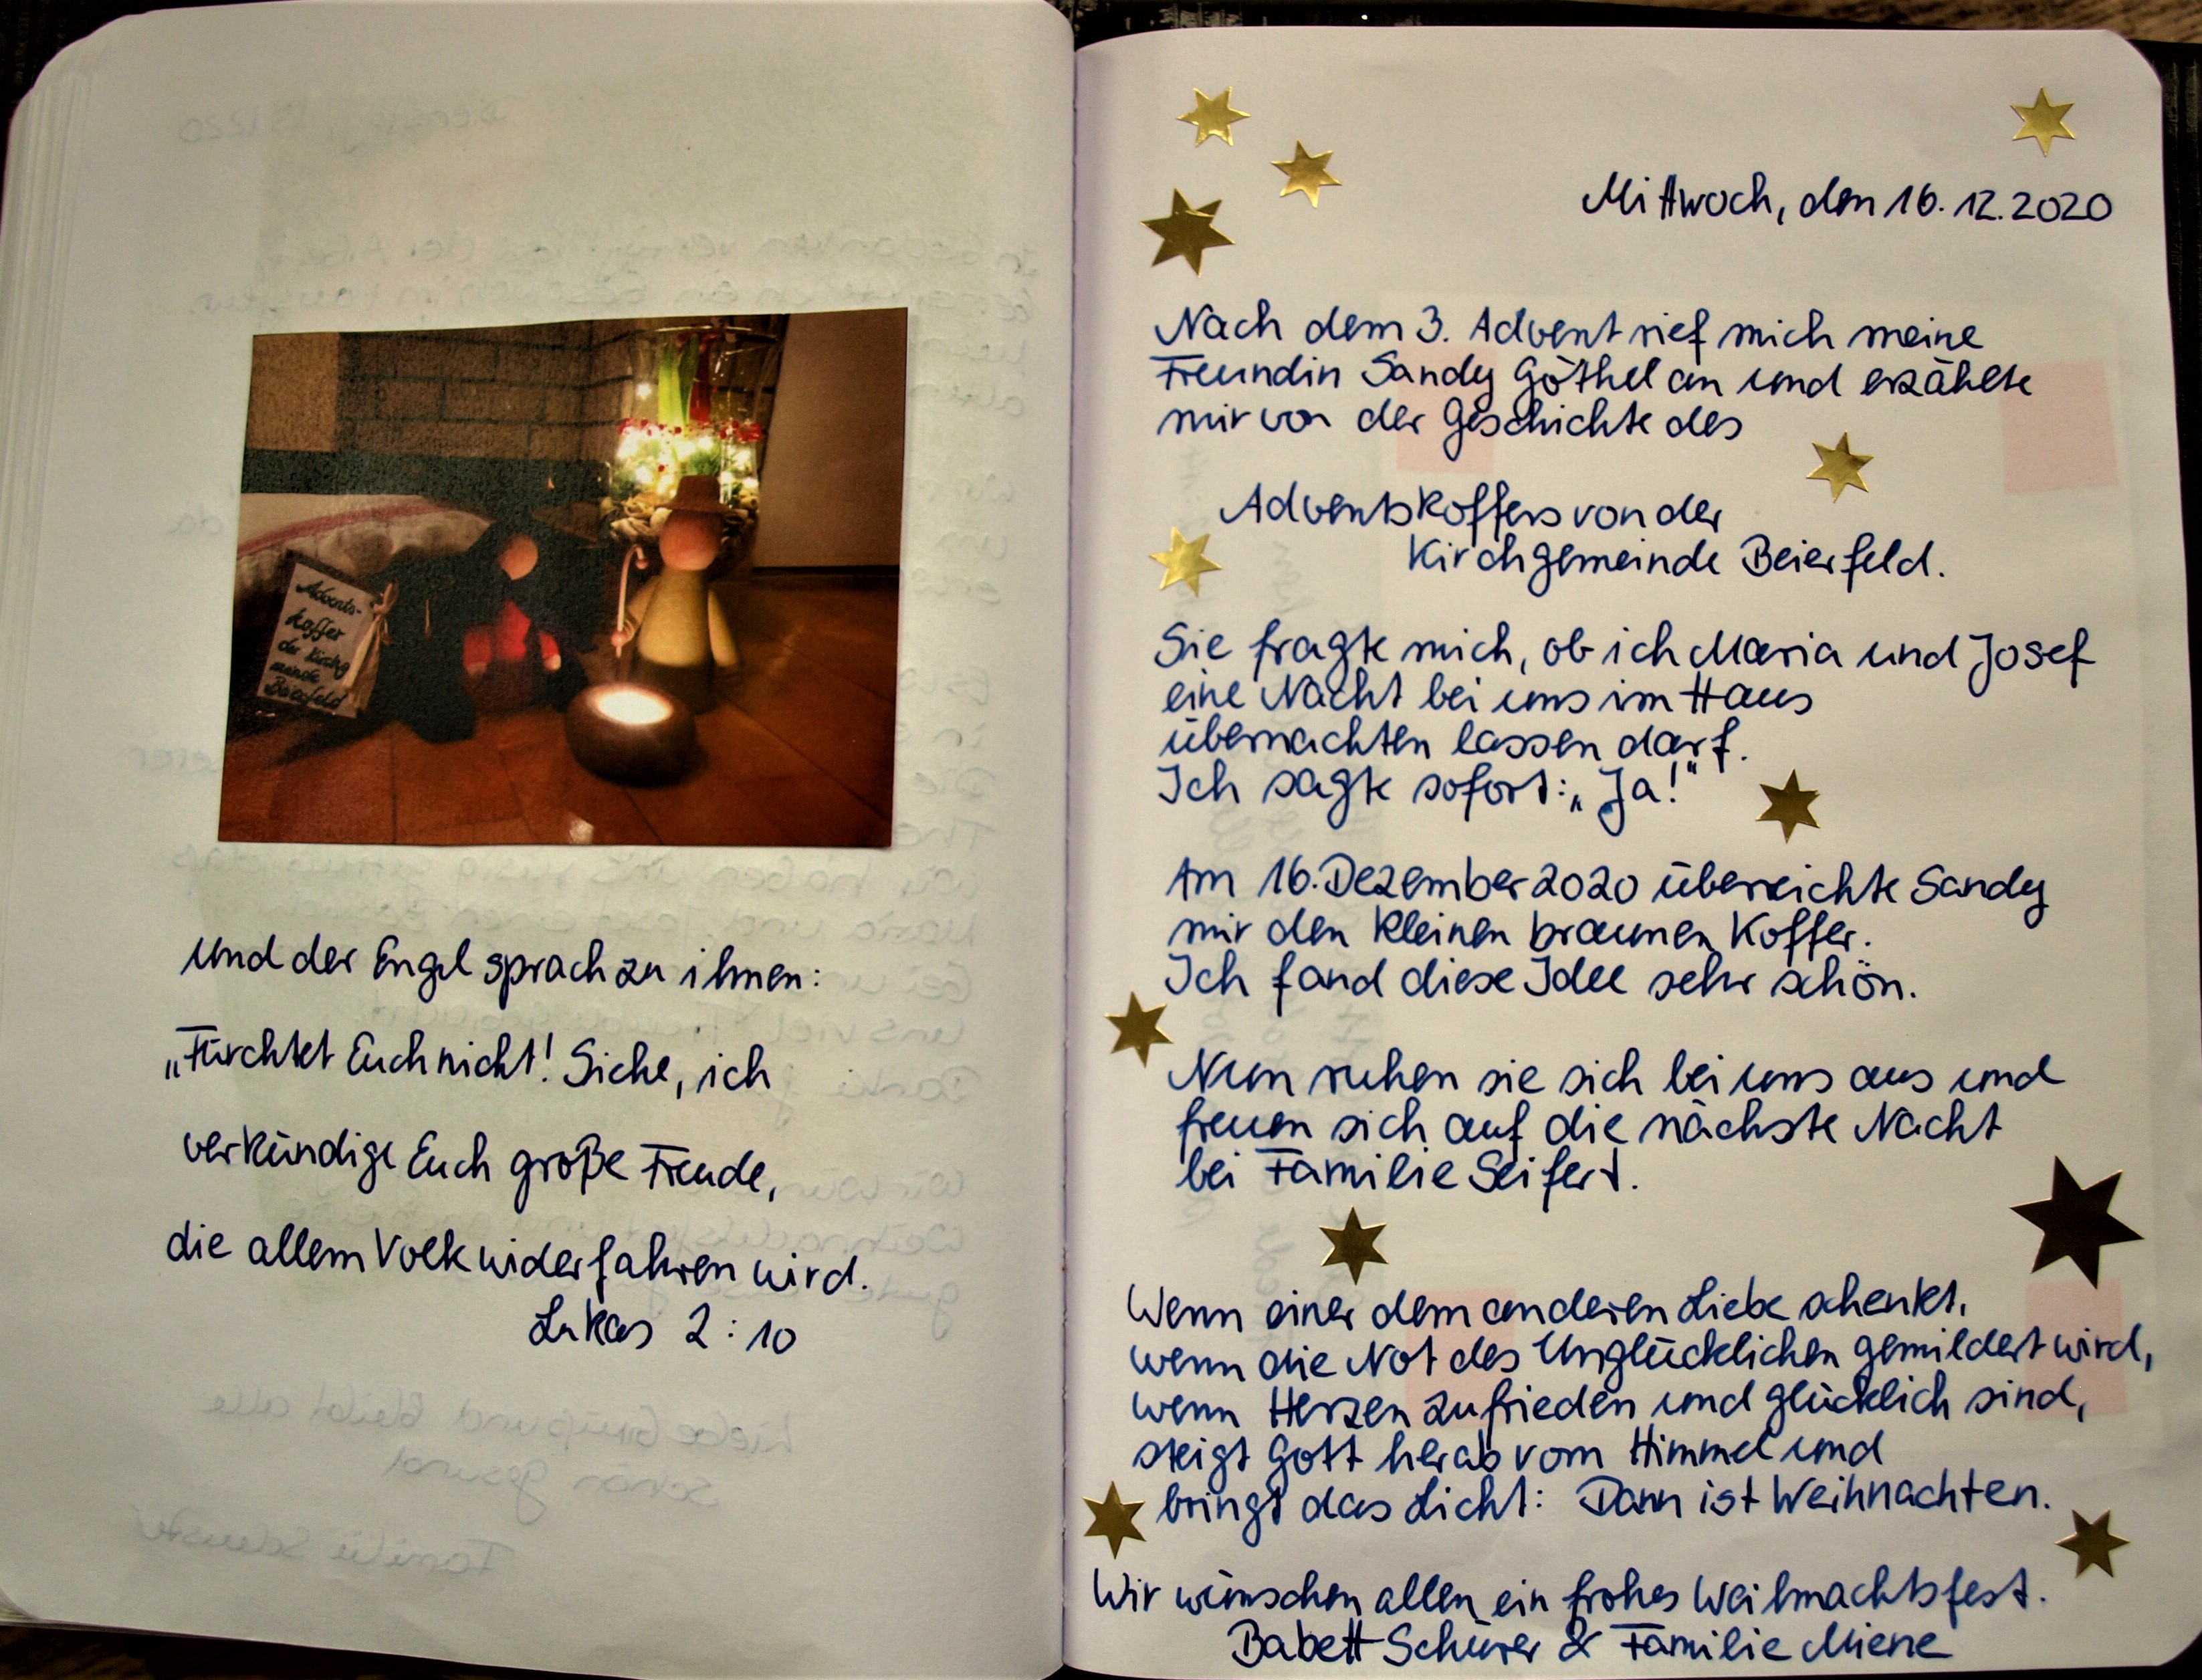 Advents-
koffer
der Kirchg
meinde
Beierfeld
Und der Engel sprach zu ihnen:
„Fürchtet Euch nicht! Siehe, ich
verkündige Euch große Freude,
die allem Volk widerfahren wird.
Lukas 2:10
Mittwoch, den 16.12.2020
Nach dem 3. Advent rief mich meine
Freundin Sandy Göthel an und erzählte
mir von der Geschichte des
Adventskoffers von der
Kirchgemeinde Beierfeld.
Sie fragte mich, ob ich Maria und Josef
eine Nacht bei uns im Haus
übernachten lassen darf.
Ich sagte sofort: „Ja!"
Am 16. Dezember 2020 überreichte Sandy
mir den kleinen braunen Koffer.
Ich fand diese Idee sehr schön.
Nun ruhen sie sich bei uns aus und
freuen sich auf die nächste Nacht
bei Familie Seifert.
Wenn einer dem anderen Liebe schenkt,
wenn die Not des Unglücklichen gemildert wird,
wenn Herzen zufrieden und glücklich sind,
steigt Gott herab vom Himmel und
bringt das Licht: Dann ist Weihnachten.
Wir wünschen allen ein frohes Weihnachtsfest.
Babett Schürer & Familie Miene